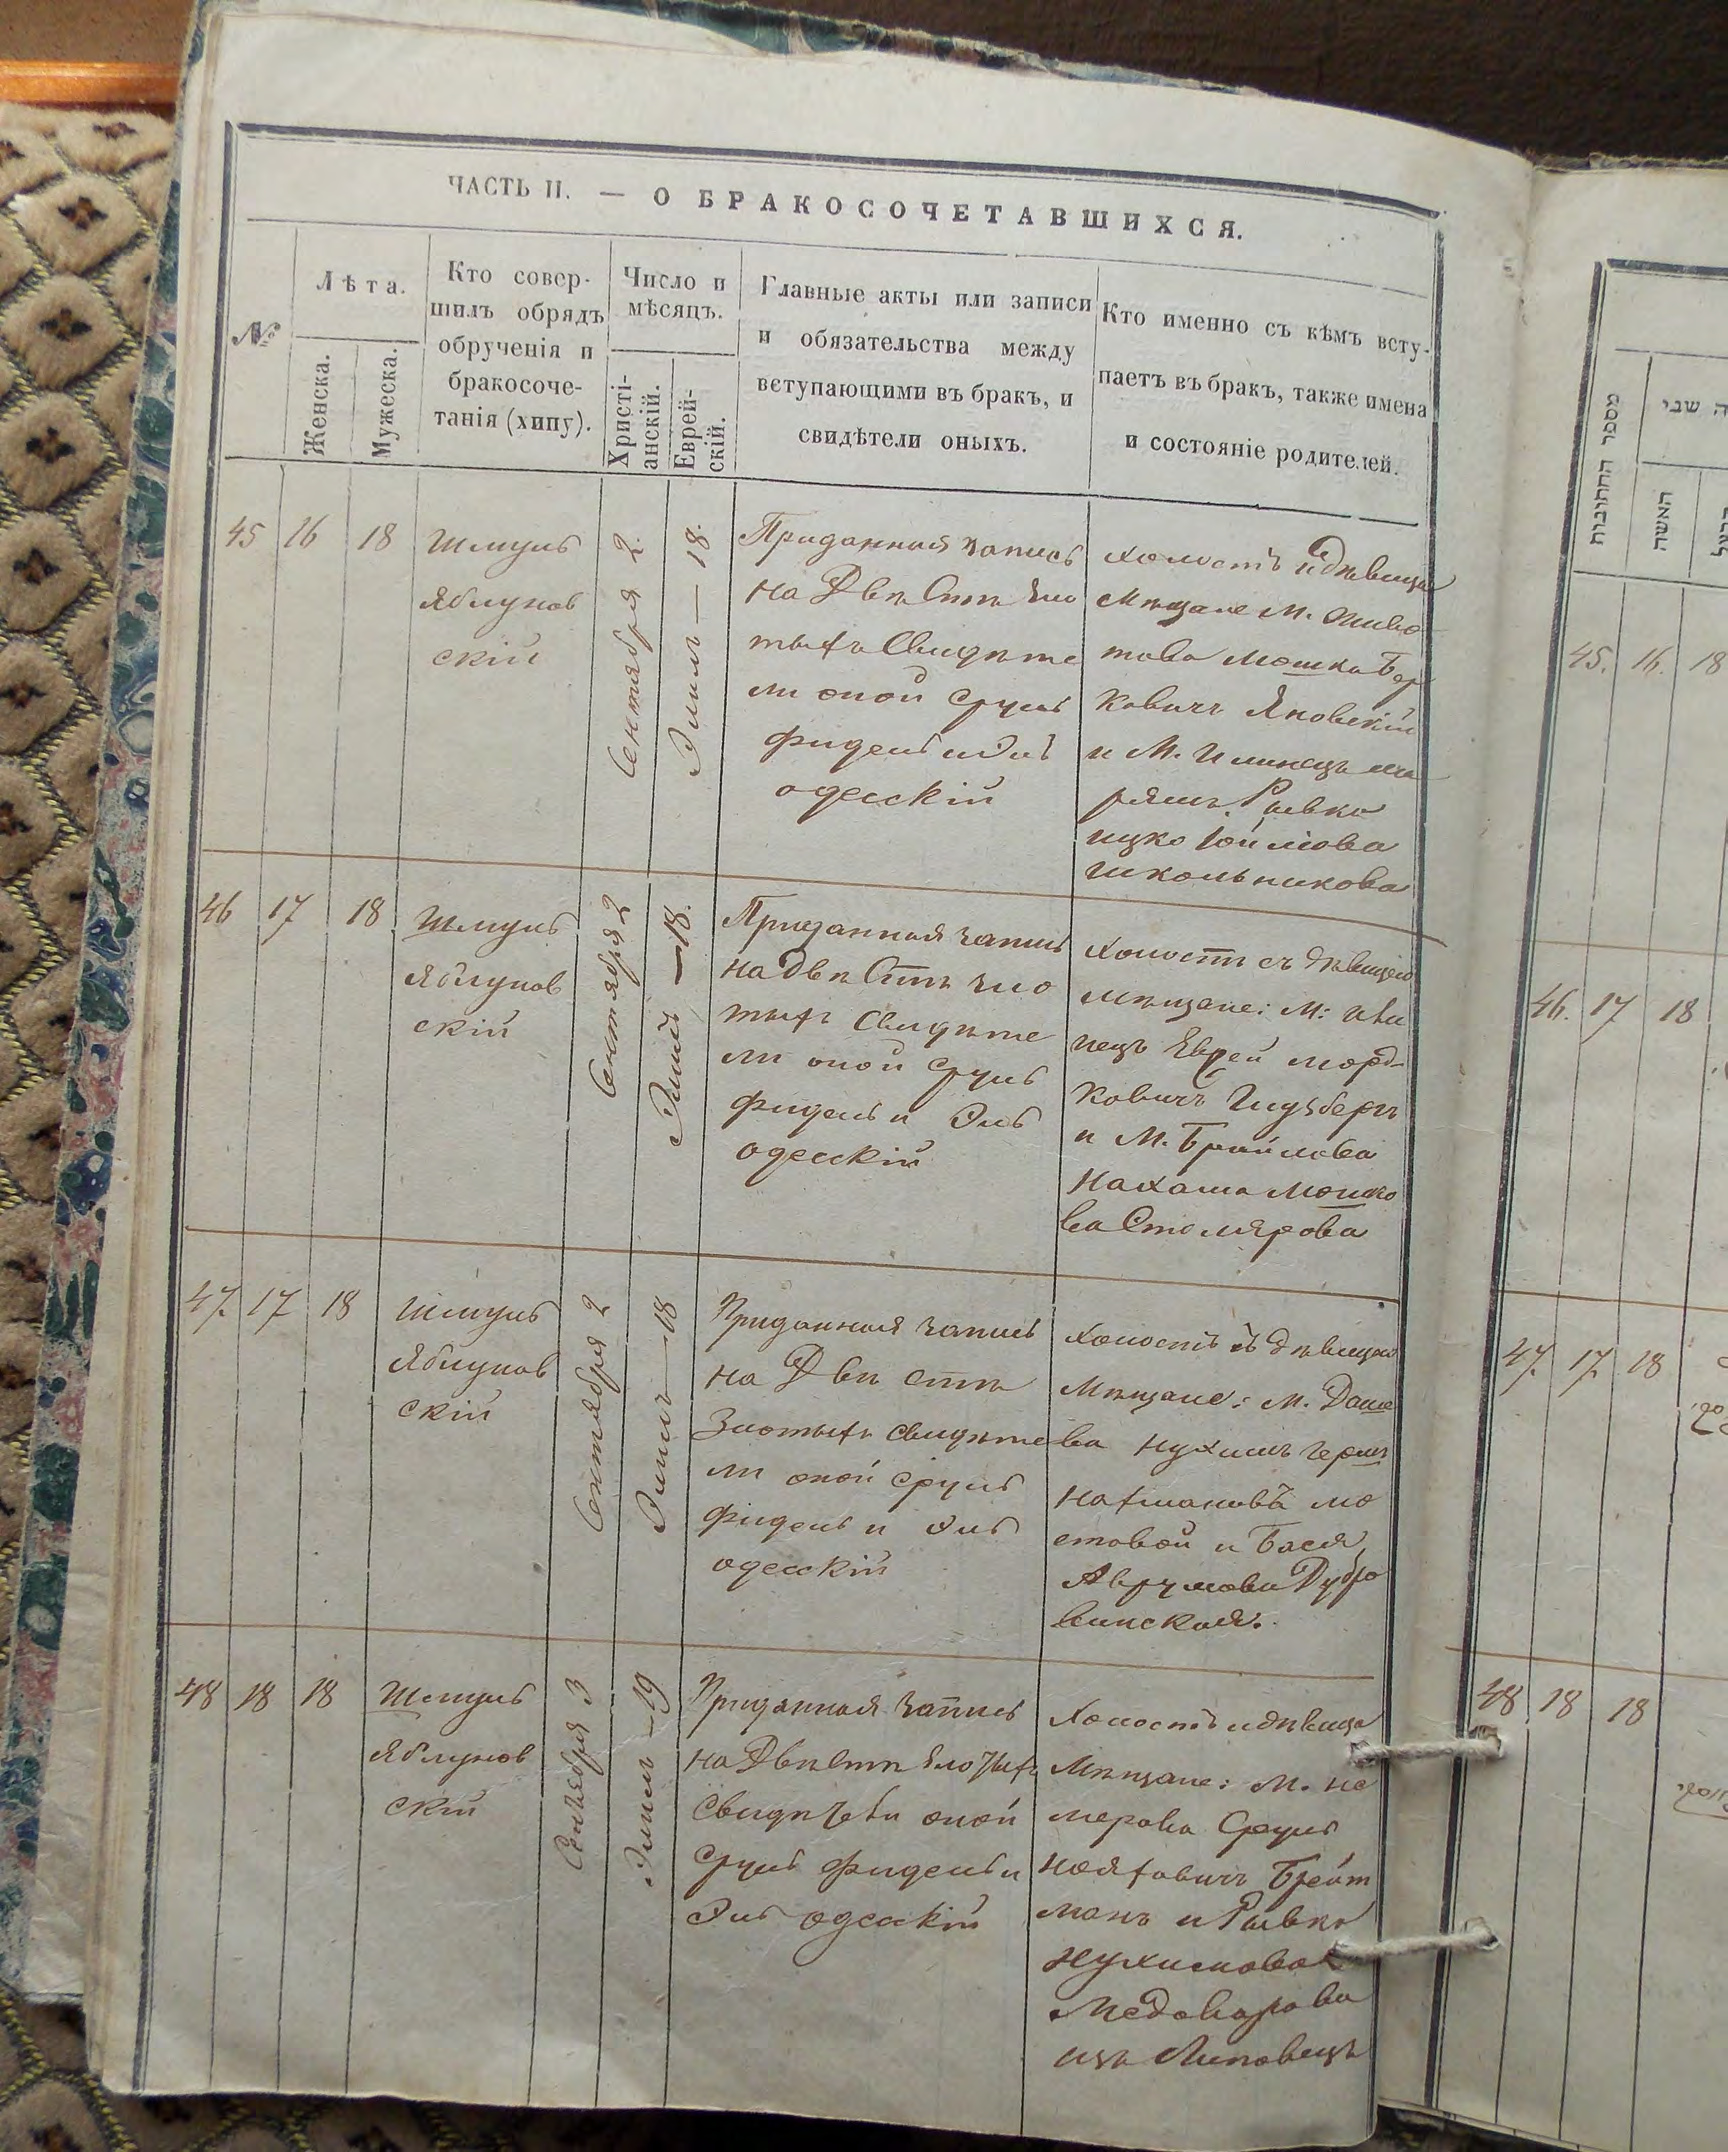 ЧАСТЬ II. — О БРАКОСОЧЕТАВШИХСЯ.
№
Лѣта.
Женска.
Мужеска.
Кто совер-
шилъ обрядъ
обрученія и
бракосоче-
танія (хипу).
Число и
мѣсяцъ.
Христі-
анскій.
Еврей-
скій.
Главные акты или записи
и обязательства между
вступающими въ бракъ, и
свидѣтели оныхъ.
Кто именно съ кѣмъ всту-
паетъ въ бракъ, также имена
и состояніе родителей.
45 16 18
Шмуль
Яблунов
скій
Сентября 2.
Элилъ — 18.
Приданная запись
на Двѣ Стѣ зло
тыхъ Свидѣте
ли оной Сруль
Фидель и Эль
одесскій
холостъ и дѣвица
Мѣщане М. Живо
това Мошко Бер
ковичъ Яновскій
и М. Илинецъ
Рывка
ицко
Школьникова
46 17 18
Шмуль
Яблунов
скій
Сентября 2
— 18.
Приданная запись
на Двѣ Стѣ зло
тыхъ Свидѣте
ли оной Сруль
Фидель и Эль
одесскій
Холостъ съ дѣвицею
Мѣщане: М:
нецъ Морд-
ковичъ
и М. Браилова
Мошко
ва Столярова
47. 17 18
Шмуль
Яблунов
скій
Сентября 2
Элилъ — 18
Приданная запись
на Двѣ стѣ
Злотыхъ свидѣте
ли оной Сруль
Фидель и Эль
одесскій
Холостъ съ дѣвицею
Мѣщане: М. Даше
ва Нухимъ Герш
Нахмановъ Мо
стовой и Бася
Аврумова Дубро
винская.
48 18 18
Шмуль
Яблунов
скій
Сентября 3
Элилъ — 19
Приданная запись
на Двѣ Стѣ злотыхъ
Свидѣтели оной
Сруль Фидель и
Эль одесскій
Холостъ и дѣвица
Мѣщане: М. Не
мерова Сруль
Брейт
манъ и Рывка
Нухимова
Медоварова
изъ Липовецъ
מספר החתונות
האשה
45. 16. 18
46. 17 18
47. 17. 18
48 18 18